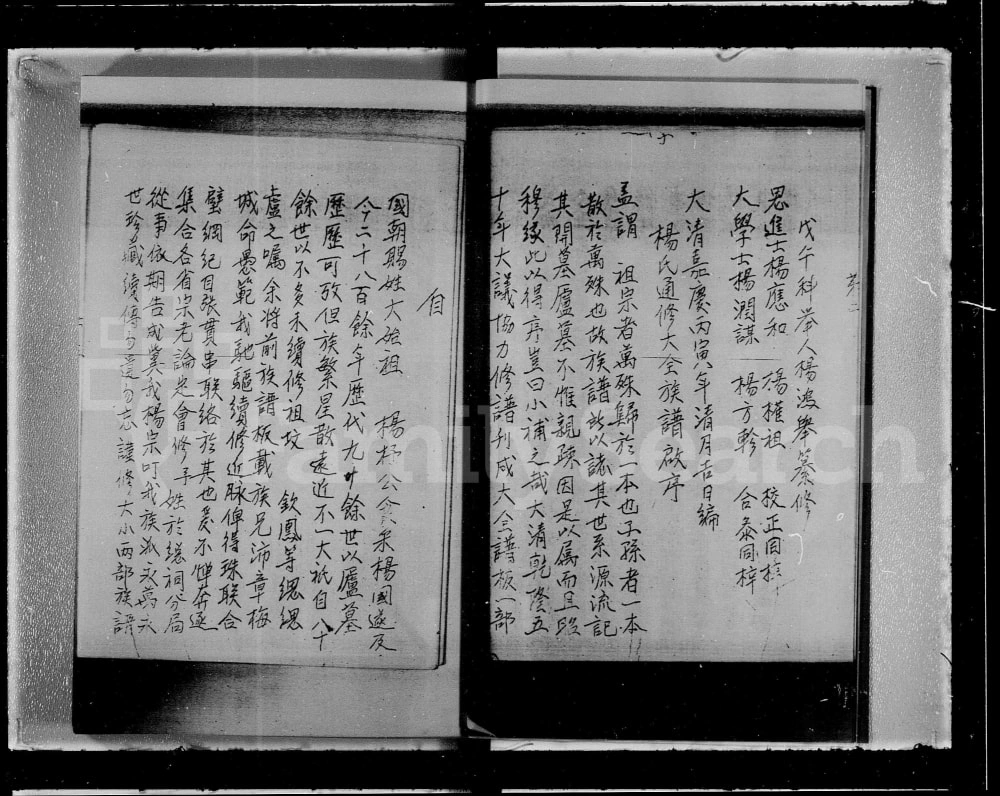 戊午科举人楊鴻舉纂修
恩進士楊應和　楊權祖　校正同梓
大學士楊潤謀　楊方軫　合叅同梓
大清嘉慶丙寅八年清月吉日編
楊氏通修大全族譜啟序
孟謂　祖宗者萬殊歸於一本也子孫者一本
散於萬殊也故族譜所以誌其世系源流記
其開墓廬墓不惟親疎因是以属而且昭
穆續此以得序豈曰小補之哉大清乾隆五
十年大議協力修譜刊成大全譜板一部
自
國朝賜姓大始祖　楊杼公食采楊國遂及
今二十八百餘年歷代九十餘世以廬墓
歷歷可攷但族繁星散遠近不一大祇自八十
餘世以不多未續修祖坟　欽鳳等緦緦
虛之囑余將前族譜板戴族兄沛章梅
城命愚範我馳驅續修近脉俾得珠联合
璧綱紀目張貫串联絡於其也爰不憚奔逐
集合各省宗老論定會修子姓於總祠分局
從事依期告成冀我楊宗叮我族派文萬永
世珍藏續傳勿遺勿忘謹修大小两部族譜